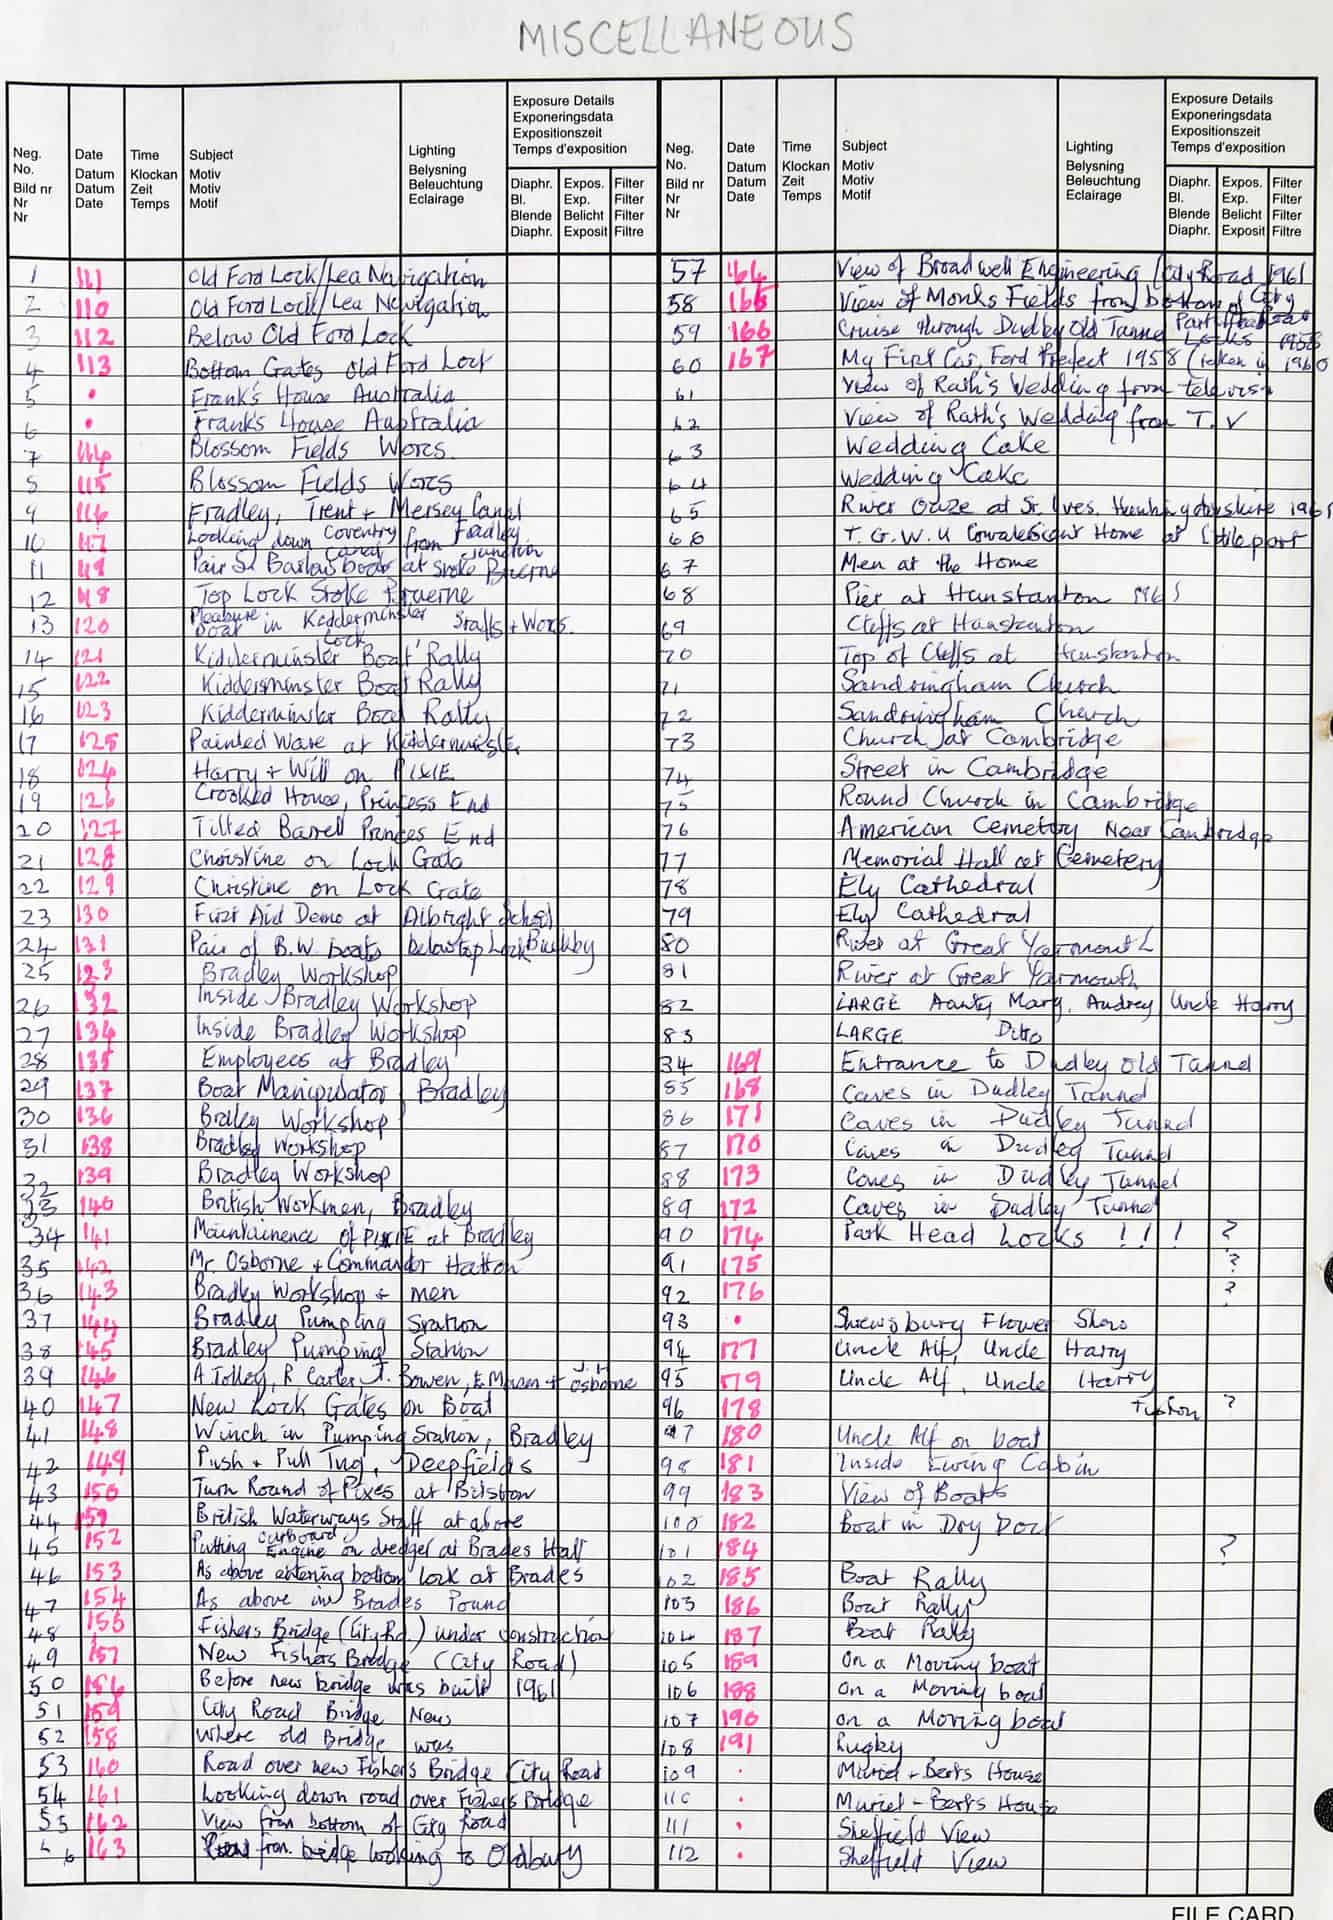 MISCELLANEOUS
Neg. No. Bild nr Nr Nr
Date Datum Datum Date
Time Klockan Zeit Temps
Subject Motiv Motiv Motif
Lighting Belysning Beleuchtung Eclairage
Exposure Details Exponeringsdata Expositionszeit Temps d'exposition
Diaphr. Bl. Blende Diaphr.
Expos. Exp. Belicht Exposit
Filter Filter Filter Filtre
1 111 Old Ford Lock/Lea Navigation
2 110 Old Ford Lock/Lea Navigation
3 112 Below Old Ford Lock
4 113 Bottom Gates Old Ford Lock
5 • Frank's House Australia
6 • Frank's House Australia
7 114 Blossom Fields Worcs.
8 115 Blossom Fields Worcs
9 116 Fradley, Trent + Mersey Canal
10 117 Looking down Coventry Canal from Fradley Junction
11 119 Pair S. Barlow boats at Stoke Bruerne
12 118 Top Lock Stoke Bruerne
13 120 Pleasure boat in Kidderminster Lock Staffs + Worcs.
14 121 Kidderminster Boat Rally
15 122 Kidderminster Boat Rally
16 123 Kidderminster Boat Rally
17 125 Painted Ware at Kidderminster
18 124 Harry + Will on PIXIE
19 126 Crooked House, Princess End
20 127 Tilted Barrell Princes End
21 128 Christine on Lock Gate
22 129 Christine on Lock Gate
23 130 First Aid Demo at Albright School
24 131 Pair of B.W. boats below top Lock Buckby
25 123 Bradley Workshop
26 132 Inside Bradley Workshop
27 134 Inside Bradley Workshop
28 135 Employees at Bradley
29 137 Boat Manipulator, Bradley
30 136 Bradley Workshop
31 138 Bradley Workshop
32 139 Bradley Workshop
33 140 British Workmen, Bradley
34 141 Maintainence of PIXIE at Bradley
35 142 Mr. Osborne + Commander Hatton
36 143 Bradley Workshop + men
37 144 Bradley Pumping Station
38 145 Bradley Pumping Station
39 146 A Tolley, R Carter, J. Bowen, E Mason + J.H Osborne
40 147 New Lock Gates on Boat
41 148 Winch in Pumping Station, Bradley
42 149 Push + Pull Tug, Deepfields
43 150 Turn Round of Pixes at Bilston
44 151 British Waterways Staff at above
45 152 Putting outboard Engine on dredger at Brades Hall
46 153 As above entering bottom lock at Brades
47 154 As above in Brades Pound
48 155 Fishers Bridge (City Rd.) under construction
49 157 New Fishers Bridge (City Road)
50 156 Before new bridge was built 1961
51 159 City Road Bridge New
52 158 Where old Bridge was
53 160 Road over new Fishers Bridge City Road
54 161 Looking down road over Fishers Bridge
55 162 View from bottom of City Road
56 163 View from bridge looking to Oldbury
57 164 View of Broadwell Engineering (City Road 1961
58 165 View of Monks Fields from bottom of City Road
59 166 Cruise through Dudley Old Tunnel Park Head Locks 1958
60 167 My First Car, Ford Prefect 1958 (taken in 1960
61 View of Rath's Wedding from televis
62 View of Rath's Wedding from T.V
63 Wedding Cake
64 Wedding Cake
65 River Ouze at St. Ives. Huntingdonshire 1961
66 T.G.W.U Convalescent Home at Littleport
67 Men at the Home
68 Pier at Hunstanton 1961
69 Cliffs at Hunstanton
70 Top of Cliffs at Hunstanton
71 Sandringham Church
72 Sandringham Church
73 Church at Cambridge
74 Street in Cambridge
75 Round Church in Cambridge
76 American Cemetery Near Cambridge
77 Memorial Hall at Cemetery
78 Ely Cathedral
79 Ely Cathedral
80 River at Great Yarmouth
81 River at Great Yarmouth
82 LARGE Aunty Mary, Audrey Uncle Harry
83 LARGE Ditto
84 169 Entrance to Dudley Old Tunnel
85 168 Caves in Dudley Tunnel
86 171 Caves in Dudley Tunnel
87 170 Caves in Dudley Tunnel
88 173 Caves in Dudley Tunnel
89 172 Caves in Dudley Tunnel
90 174 Park Head Locks !!! ?
91 175 ?
92 176 ?
93 • Shrewsbury Flower Show
94 177 Uncle Alf, Uncle Harry
95 179 Uncle Alf, Uncle Harry
96 178 ?
97 180 Uncle Alf on boat
98 181 Inside Living Cabin
99 183 View of Boats
100 182 Boat in Dry Dock
101 184 ?
102 185 Boat Rally
103 186 Boat Rally
104 187 Boat Rally
105 189 On a Moving boat
106 188 On a Moving boat
107 190 On a Moving boat
108 191 Rugby
109 • Muriel + Berts House
110 • Muriel + Berts House
111 • Sheffield View
112 • Sheffield View
FILE CARD